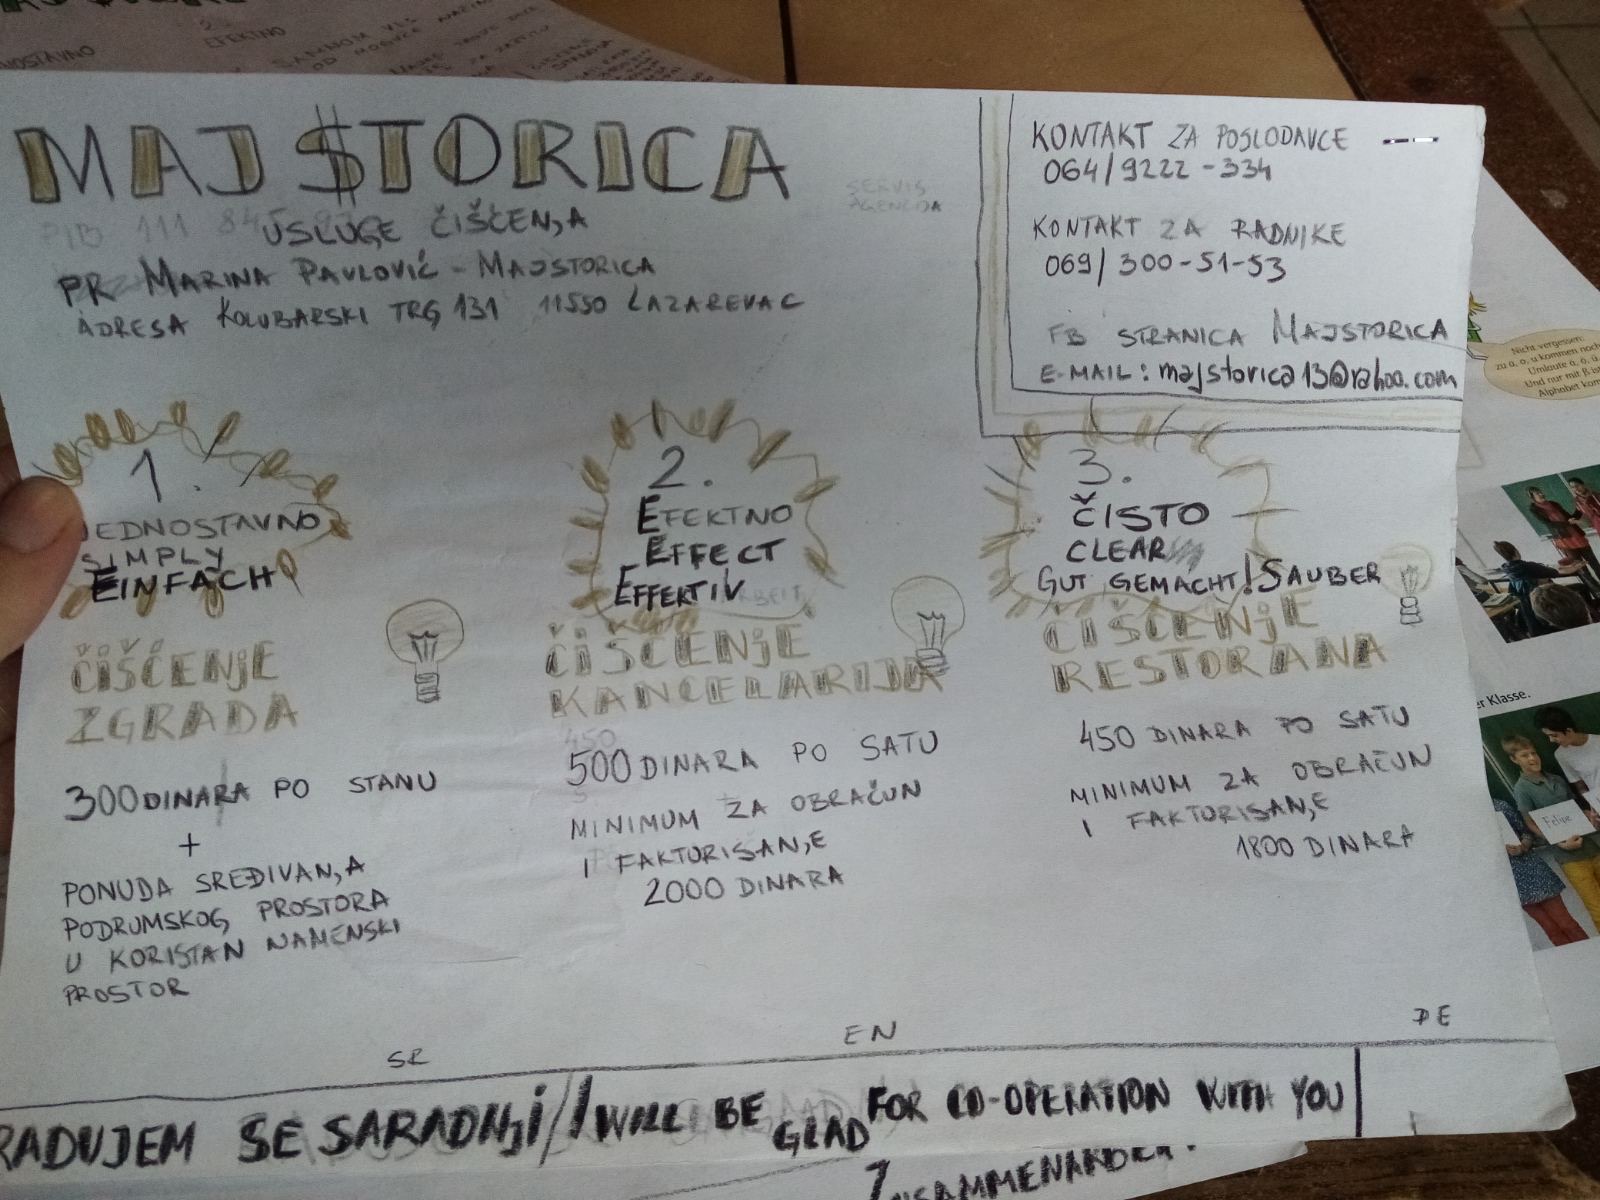 MAJ$TORICA
USLUGE ČIŠĆENJA
PR MARINA PAVLOVIĆ - MAJSTORICA
ADRESA KOLUBARSKI TRG 131 11550 LAZAREVAC
SERVIS
AGENCIJA
KONTAKT ZA POSLODAVCE
064/9222-334
KONTAKT ZA RADNIKE
069/300-51-53
FB STRANICA MAJSTORICA
E-MAIL: majstorica13@yahoo.com
1.
JEDNOSTAVNO
SIMPLY
EINFACH
ČIŠĆENJE
ZGRADA
300 DINARA PO STANU
+
PONUDA SREĐIVANJA
PODRUMSKOG PROSTORA
U KORISTAN NAMENSKI
PROSTOR
2.
EFEKTNO
EFFECT
EFFEKTIV
ČIŠĆENJE
KANCELARIJA
500 DINARA PO SATU
MINIMUM ZA OBRAČUN
I FAKTURISANJE
2000 DINARA
3.
ČISTO
CLEAR
GUT GEMACHT! SAUBER
ČIŠĆENJE
RESTORANA
450 DINARA PO SATU
MINIMUM ZA OBRAČUN
I FAKTORISANJE
1800 DINARA
SR
EN
DE
RADUJEM SE SARADNJI / I WILL BE GLAD FOR CO-OPERATION WITH YOU
EFEKTNO
Nicht vergessen:
zu a, o, u kommen noch
Umlaute ä, ö, ü
Und nur mit ß ist
Alphabet kom
er Klasse.
Felipe